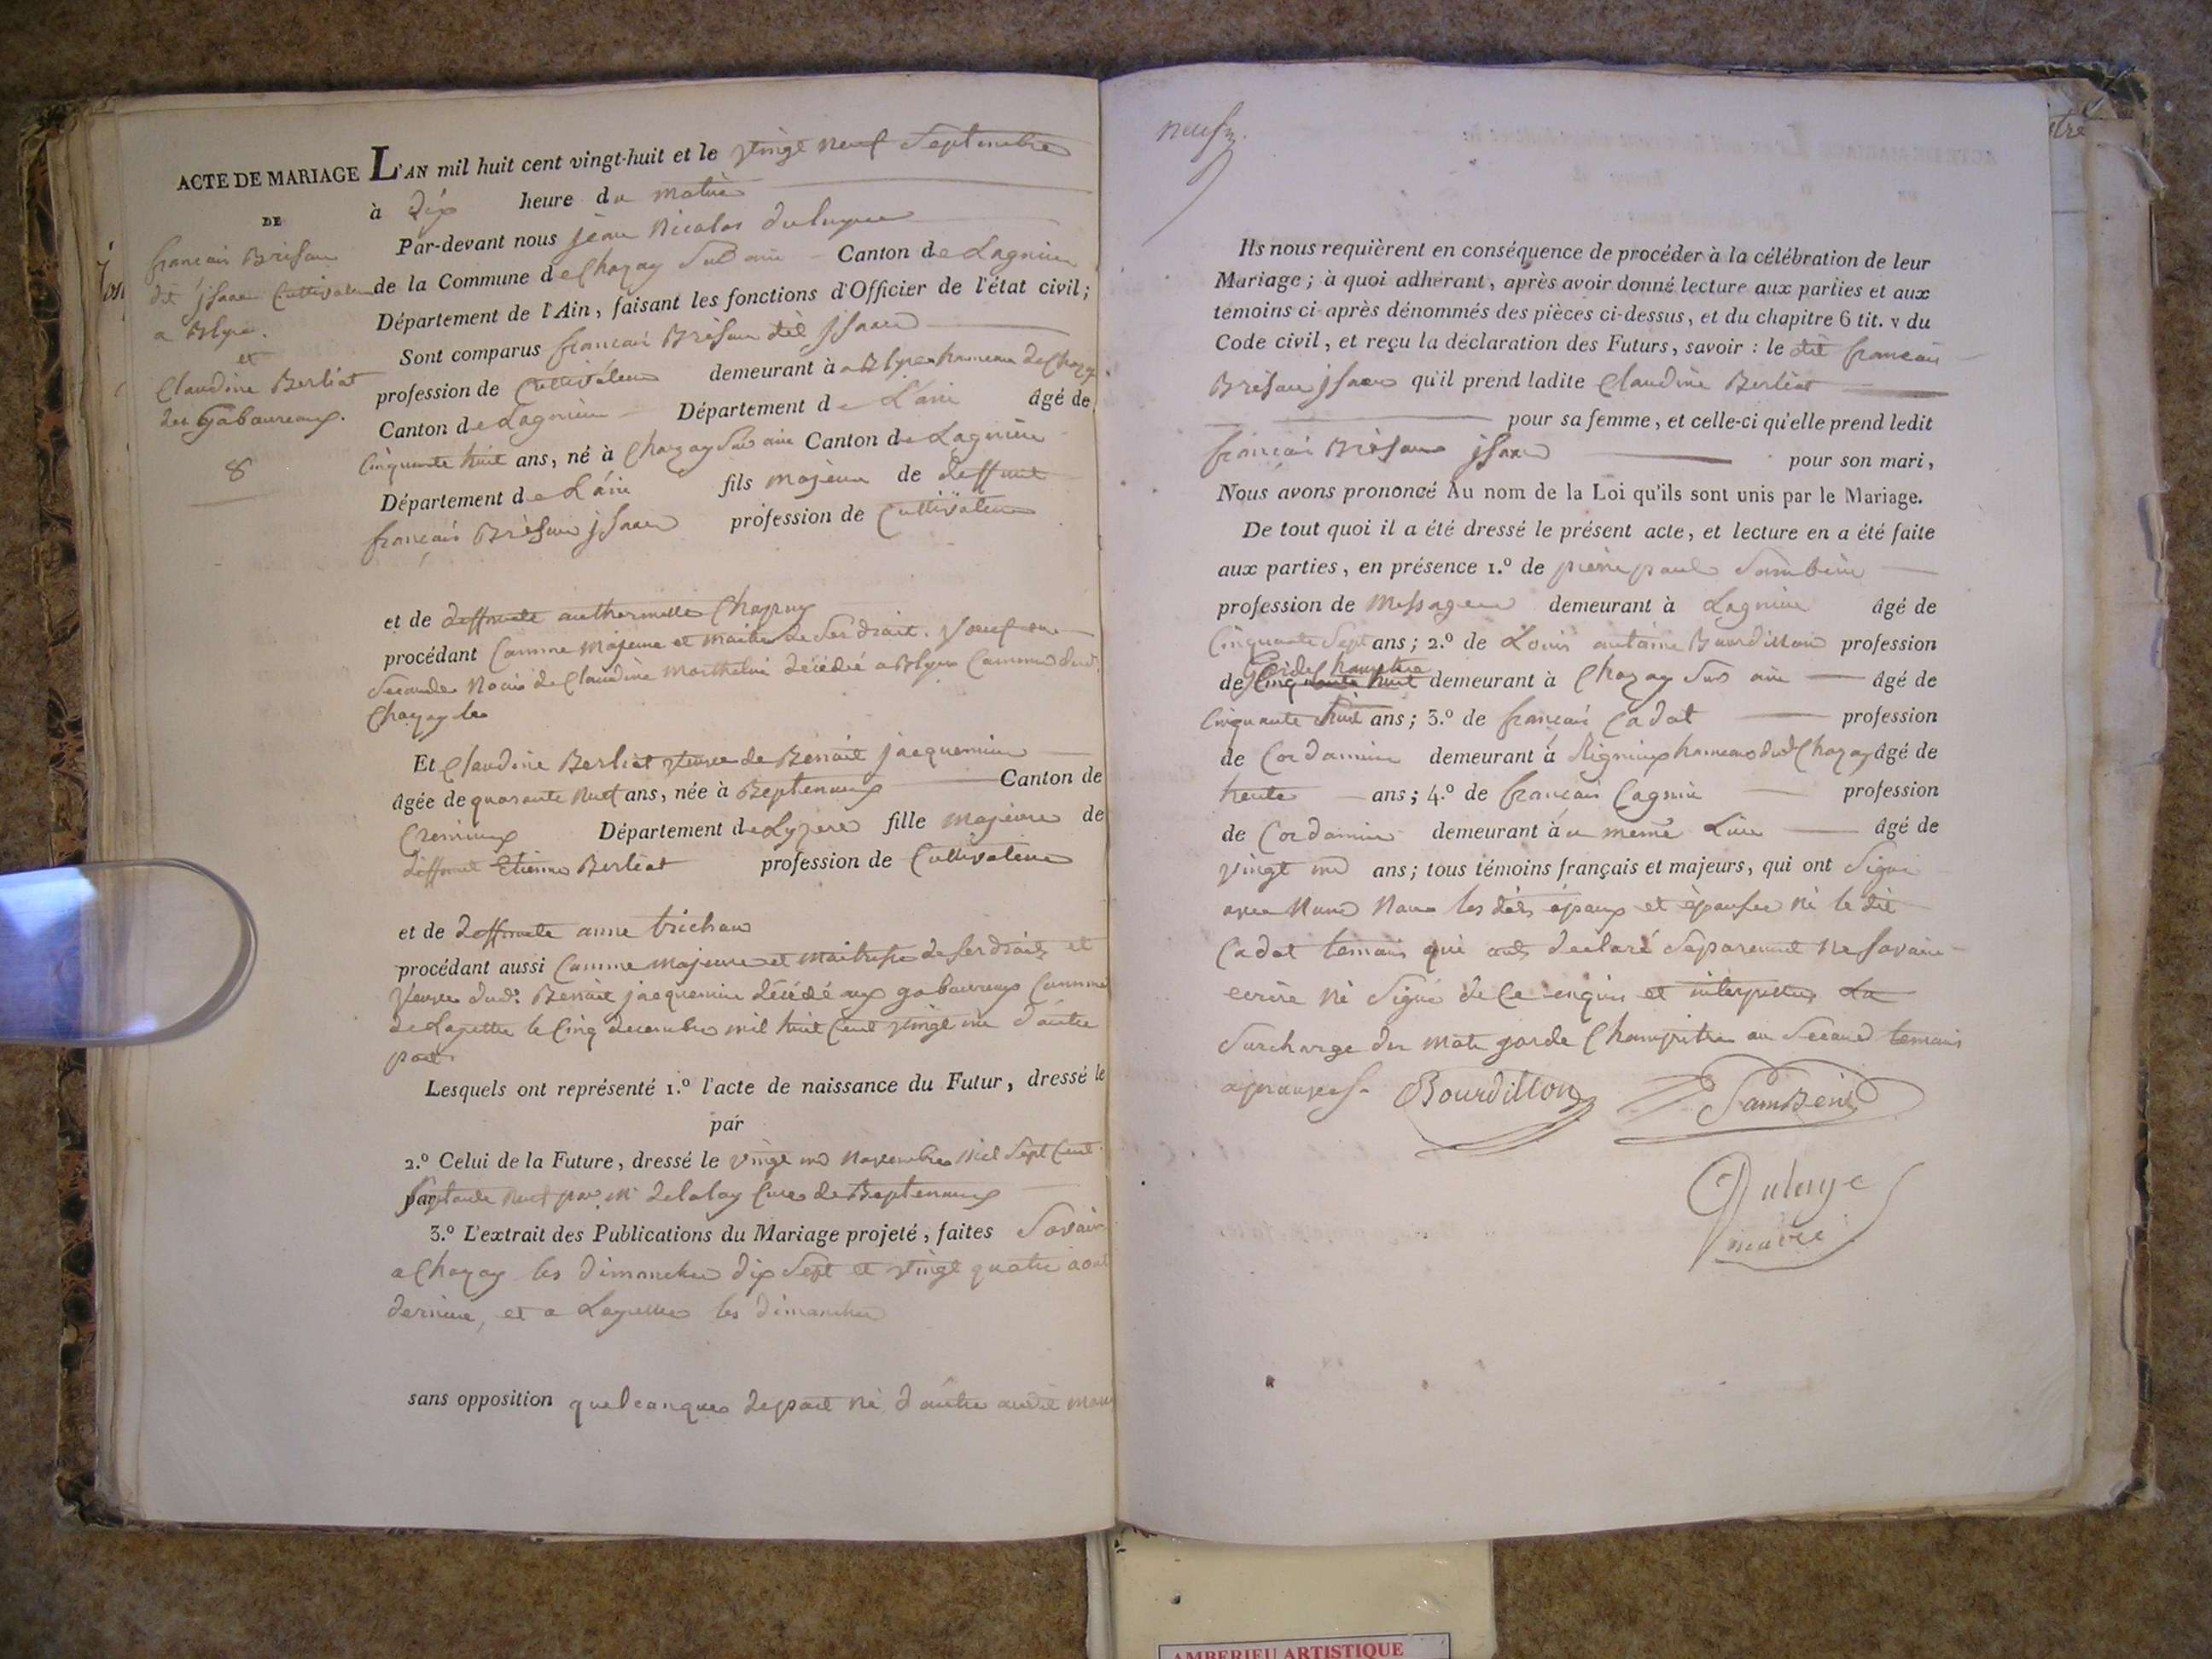 ACTE DE MARIAGE
DE
francois Brisau
dit jsaac Cultivateur
a Blye.
et
Claudine Berliat
des gaboureaux.
8
L'AN mil huit cent vingt-huit et le vingt neuf Septembre
à dix heure du matin
Par-devant nous jean Nicolas duluye
de la Commune de Chazay Sur ain Canton de Lagnieu
Département de l'Ain, faisant les fonctions d'Officier de l'état civil;
Sont comparus francois Brisau dit jsaac
profession de Cultivateur demeurant à a Blye hameau de Chazay
Canton de Lagnieu Département de L'ain âgé de
Cinquante huit ans, né à Chazay Sur ain Canton de Lagnieu
Département de L'ain fils majeur de deffunt
françois Brisau jsaac profession de Cultivateur
et de deffunte anthermette Chapuy
procédant Comme majeur et maitre de Ses droit. Veuf en
Seconde Noces de Claudine Morthelin décédée a Blye Commune dud.
Chazay le
Et Claudine Berliat veuve de Benoit jacquemin
âgée de quarante neuf ans, née à Septemoux Canton de
Cremieux Département de Lyzere fille majeure de
deffunt Etienne Berliat profession de Cultivateur
et de deffunte anne trichau
procédant aussi Comme majeure et maitresse de ses droits et
Veuve dud. Benoit jacquemin décédé aux gaboureaux Commune
de Loyettes le Cinq decembre mil huit Cent vingt un d'autre
part
Lesquels ont représenté 1.º l'acte de naissance du Futur, dressé le
par
2.º Celui de la Future, dressé le vingt un Novembre Mil Sept Cent
par Septante neuf par Mr delalay Cure de Septemoux
3.º L'extrait des Publications du Mariage projeté, faites Savoir
a Chazay les dimanches dix Sept et vingt quatre aout
dernier, et a Loyettes les dimanches
sans opposition quelconques de part ni d'autre audit mari
neuf
Ils nous requièrent en conséquence de procéder à la célébration de leur
Mariage; à quoi adhérant, après avoir donné lecture aux parties et aux
témoins ci-après dénommés des pièces ci-dessus, et du chapitre 6 tit. v du
Code civil, et reçu la déclaration des Futurs, savoir : le dit francois
Brisau jsaac qu'il prend ladite Claudine Berliat
pour sa femme, et celle-ci qu'elle prend ledit
françois Brisau jsaac pour son mari,
Nous avons prononcé Au nom de la Loi qu'ils sont unis par le Mariage.
De tout quoi il a été dressé le présent acte, et lecture en a été faite
aux parties, en présence 1.º de pierre paul Sambein
profession de Messager demeurant à Lagnieu âgé de
Cinquante Sept ans; 2.º de Louis antoine Bourdillon profession
de Garde Champetre demeurant à Chazay Sur ain âgé de
Cinquante huit ans; 3.º de francois Cadot profession
de Cordonnier demeurant à Rignieux hameau dud. Chazay âgé de
trente ans; 4.º de francois Cagnin profession
de Cordonnier demeurant à u meme Lieu âgé de
vingt un ans; tous témoins français et majeurs, qui ont Signé
avec Nous Non les dits époux et épouse ni le dit
Cadot temoin qui ont declaré Séparement ne Savoir
ecrire ni Signé de Ce enquis et interpellés La
Surcharge des mots garde Champetre au Second temoin
approuvés.
Bourdillon
Sambein
Duluye
maire
AMBERIEU ARTISTIQUE